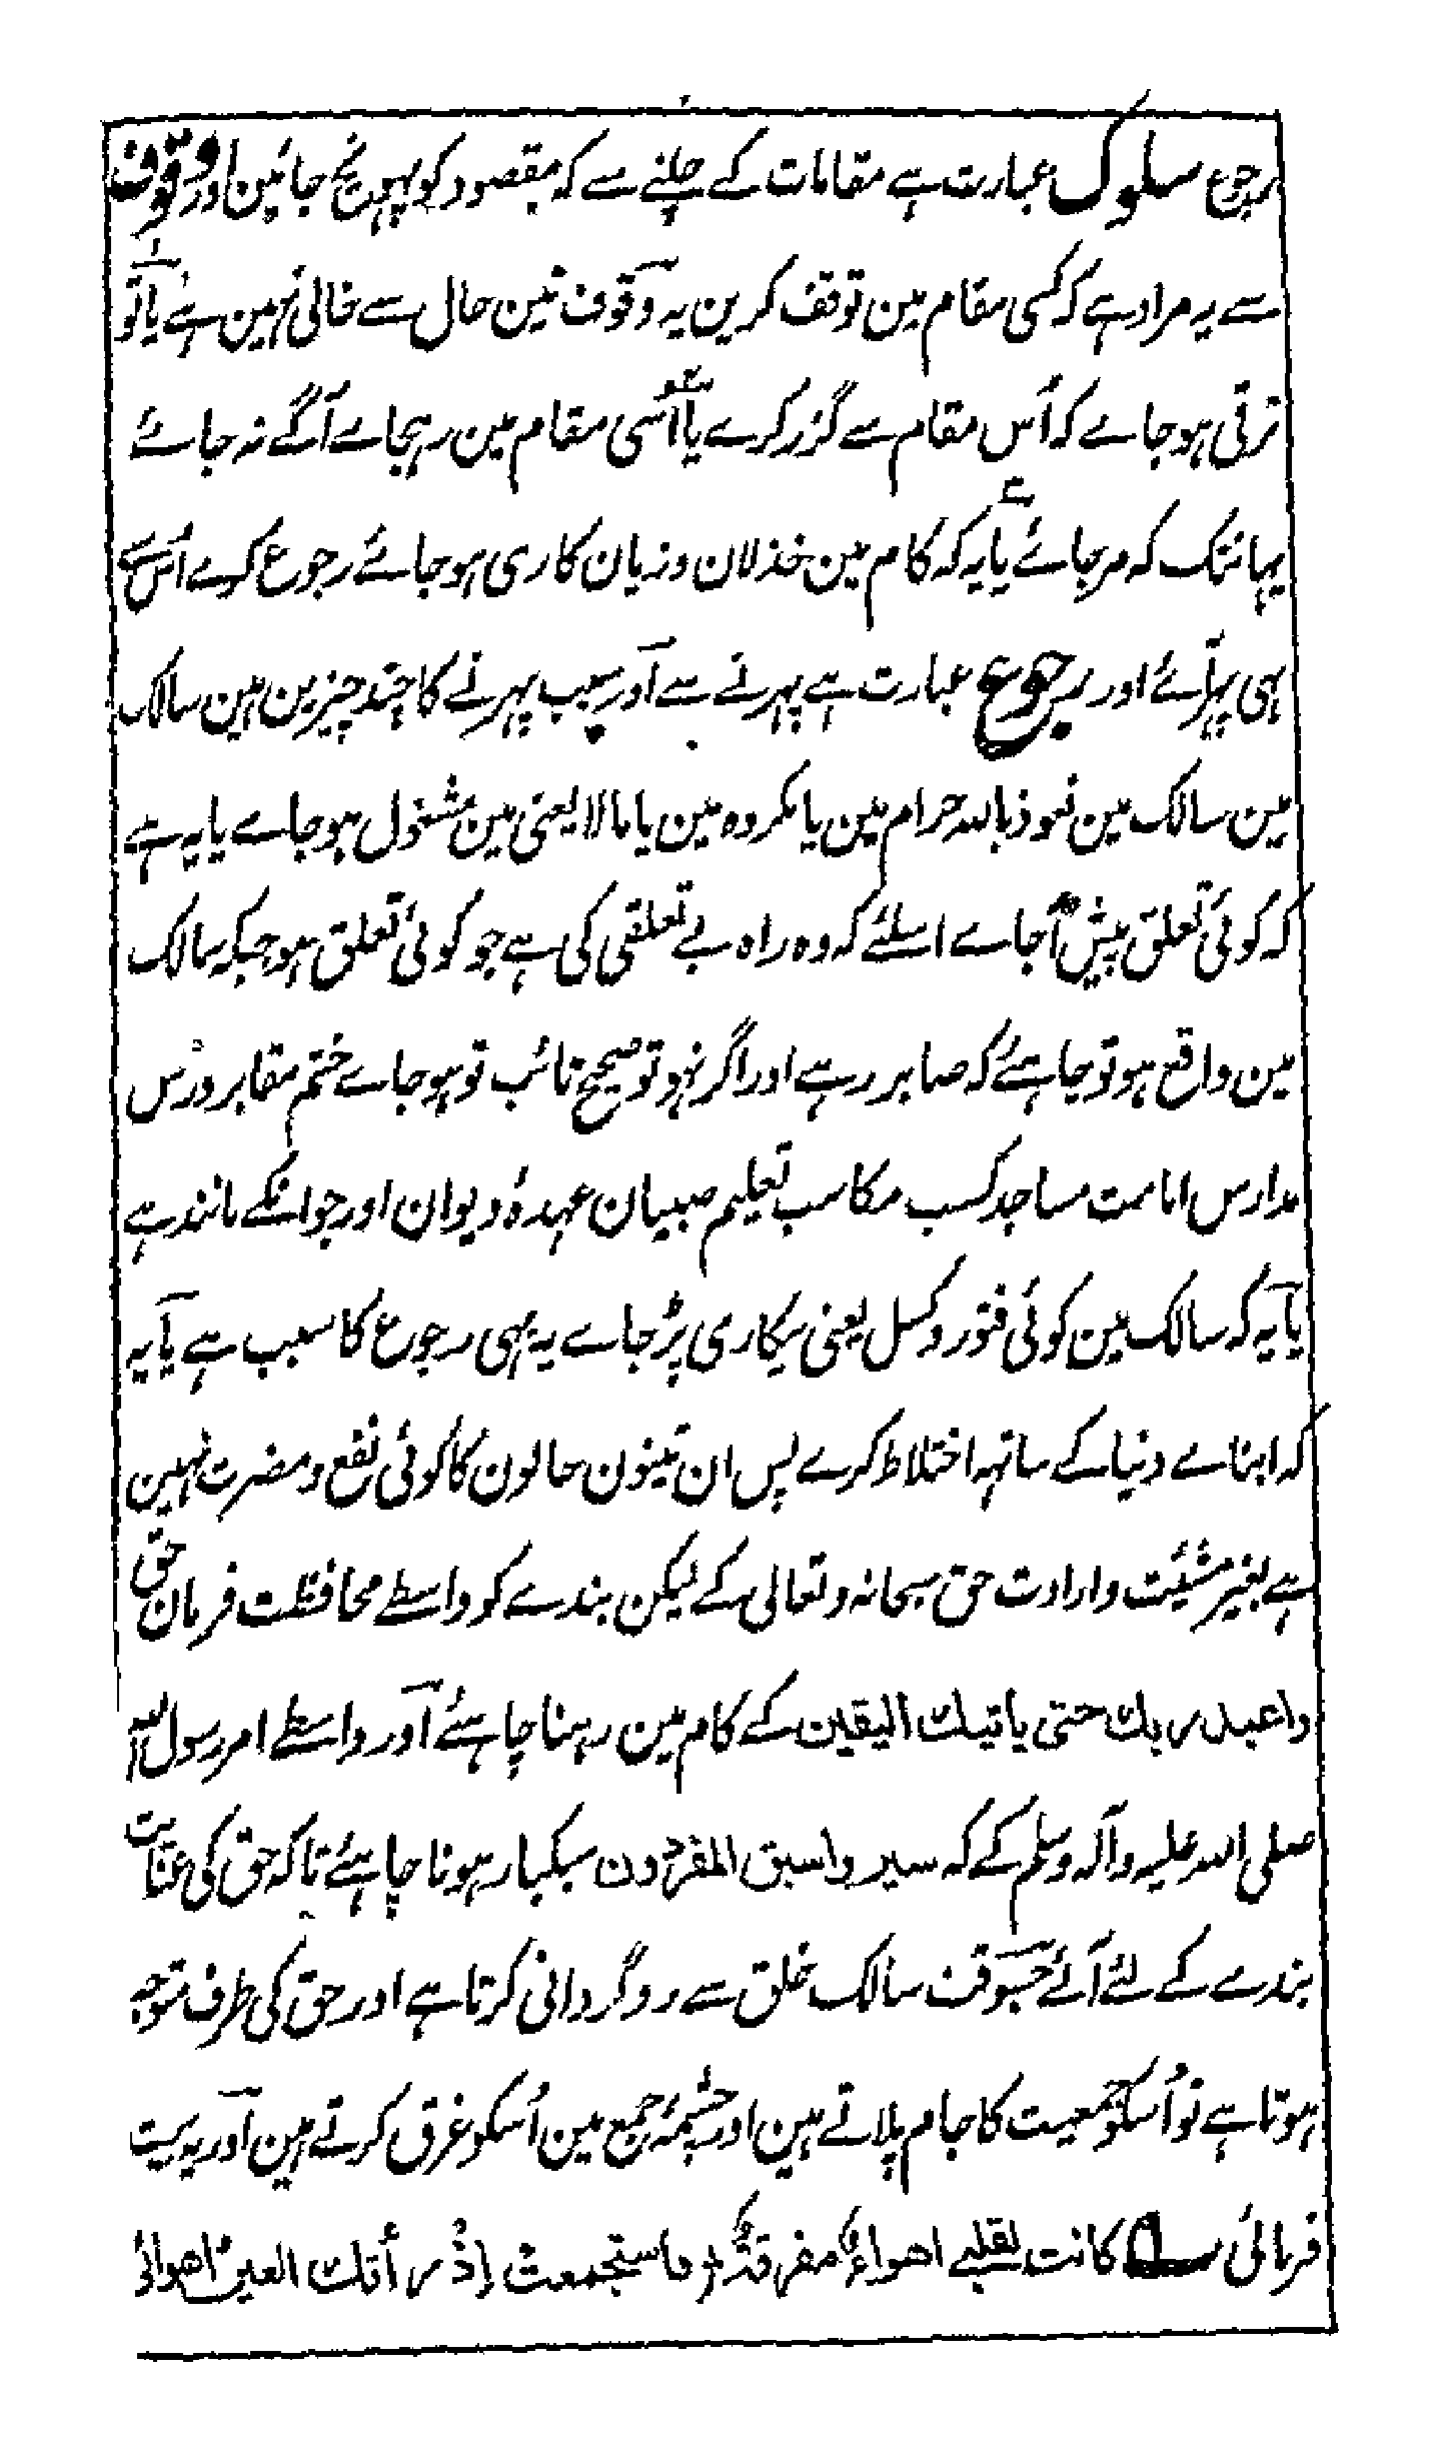 رجوع سلوک عبارت ہے مقامات کے چلنے سے کہ مقصود کو پہونچ جائین اور وقوف
سے یہ مراد ہے کہ کسی مقام مین توقف کرین یہ وقوف تین حال سے خالی نہین ہے یا تو
ترقی ہو جاے کہ اُس مقام سے گزر کرے یا اُسی مقام مین رہجاے آگے نہ جاے
یہانتک کہ مر جائے یا یہ کہ کام مین خذلان و زیان کاری ہو جائے رجوع کرے اُس سے
ہی پہر آئے اور رجوع عبارت ہے پہرنے سے اور سبب پہرنے کا چند چیزین ہین سالک
مین سالک مین نعوذ باللہ حرام مین یا مکروہ مین یا مالا یعنی مین مشغول ہو جاے یا یہ ہے
کہ کوئی تعلق پیش آجاے اسلئے کہ وہ راہ بے تعلقی کی ہے جو کوئی تعلق ہو جبکہ سالک
مین واقع ہو تو چاہئے کہ صابر رہے اور اگر نہو تو صحیح تائب تو ہو جاے ختم مقابر درس
مدارس امامت مساجد کسب مکاسب تعلیم صبیان عہدۂ دیوان اور جو انکے مانند ہے
یا یہ کہ سالک مین کوئی فتور و کسل یعنی بیکاری پڑ جاے یہ بھی رجوع کا سبب ہے یا یہ
کہ ابناے دنیا کے ساتہہ اختلاط کرے پس ان تینون حالون کا کوئی نفع و مضرت نہین
ہے بغیر مشیئت و ارادت حق سبحانہ و تعالی کے لیکن بندے کو واسطے محافظت فرمان حق
واعبد ربك حتى ياتيك اليقين کے کام مین رہنا چاہئے اور واسطے امر رسول اللہ
صلی اللہ علیہ وآلہ وسلم کے کہ سيروا سبق المفردون سبکبار ہونا چاہئے تاکہ حق کی عنایت
بندے کے لئے آئے جسوقت سالک خلق سے روگردانی کرتا ہے اور حق کی طرف متوجہ
ہوتا ہے تو اُسکو جمعیت کا جام پلاتے ہین اور چشمۂ جمع مین اُسکو غرق کرتے ہین اور یہ بیت
فرمائی ؎ كانت لقلبي اهواءٌ مفرقةٌ فاستجمعت اذ رأتك العين اهوائي